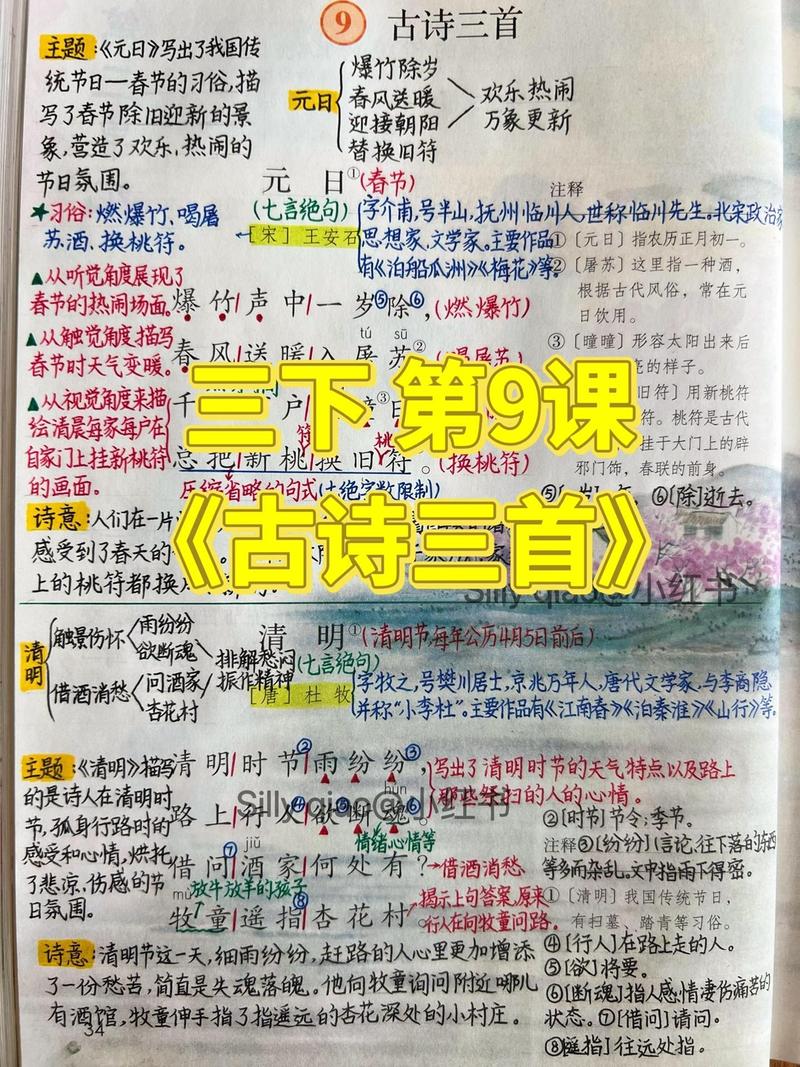 9 古诗三首
主题:《元日》写出了我国传
统节日—春节的习俗,描
写了春节除旧迎新的景
象,营造了欢乐、热闹的
节日氛围。
元日
爆竹除岁
春风送暖
迎接朝阳
替换旧符
欢乐热闹
万象更新
★习俗:燃爆竹、喝屠
苏酒、换桃符。
元 日①(春节)
(七言绝句)
[宋] 王安石
字介甫,号半山,抚州临川人,世称临川先生。北宋政治家
思想家、文学家。主要作品
有《泊船瓜洲》《梅花》等。
注释
①〔元日〕指农历正月初一。
②〔屠苏〕这里指一种酒,
根据古代风俗,常在元
日饮用。
③〔曈曈〕形容太阳出来后
的样子。
旧符〕用新桃符
符。桃符是古代
挂于大门上的辟
邪门饰,春联的前身。
⑥[除]逝去。
▲从听觉角度展现了
春节的热闹场面。
▲从触觉角度描写
春节时天气变暖。
▲从视觉角度来描
绘清晨每家每户在
自家门上挂新桃符
的画面。
爆竹声中一岁⑤除⑥,(燃爆竹)
tú sū
春风送暖入屠苏②
(喝屠苏)
千 户 ③日
总把新桃换旧符。(换桃符)
压缩省略的句式(七绝字数限制)
诗意:人们在一片
感受到了春天的
上的桃符都换
三下 第9课
《古诗三首》
Silly qiao@小红书
清明
触景伤怀
雨纷纷
欲断魂
借酒消愁
问酒家
杏花村
排解愁闷
振作精神
清 明①(清明节,每年公历4月5日前后)
(七言绝句)
[唐] 杜 牧
字牧之,号樊川居士,京兆万年人,唐代文学家,与李商隐
并称“小李杜”。主要作品有《江南春》《泊秦淮》《山行》等。
主题:《清明》描写
的是诗人在清明时
节,孤身行路时的
感受和心情,烘托
了悲凉、伤感的节
日氛围。
清明时节②雨纷纷③,
写出了清明时节的天气特点以及路上
那些祭扫的人的心情。
hún
路上行人④欲⑤断魂⑥。
情绪心情等
Silly qiao@小红书
jiǔ
借问⑦酒家何处有?→借酒消愁
mù
放牛放羊的孩子
牧童遥指⑧杏花村
揭示上句答案,原来
行人在向牧童问路。
②[时节]节令;季节。
注释③[纷纷](言论,往下落的东西
等多而杂乱。文中指雨下得密。
①〔清明〕我国传统节日,
有扫墓、踏青等习俗。
④[行人]在路上走的人。
⑤[欲]将要。
⑥[断魂]指人感情凄伤痛苦的
状态。⑦[借问]请问。
⑧[遥指]往远处指。
诗意:清明节这一天,细雨纷纷,赶路的人心里更加增添
了一份愁苦,简直是失魂落魄。他向牧童询问附近哪儿
有酒馆,牧童伸手指了指遥远的杏花深处的小村庄。
34